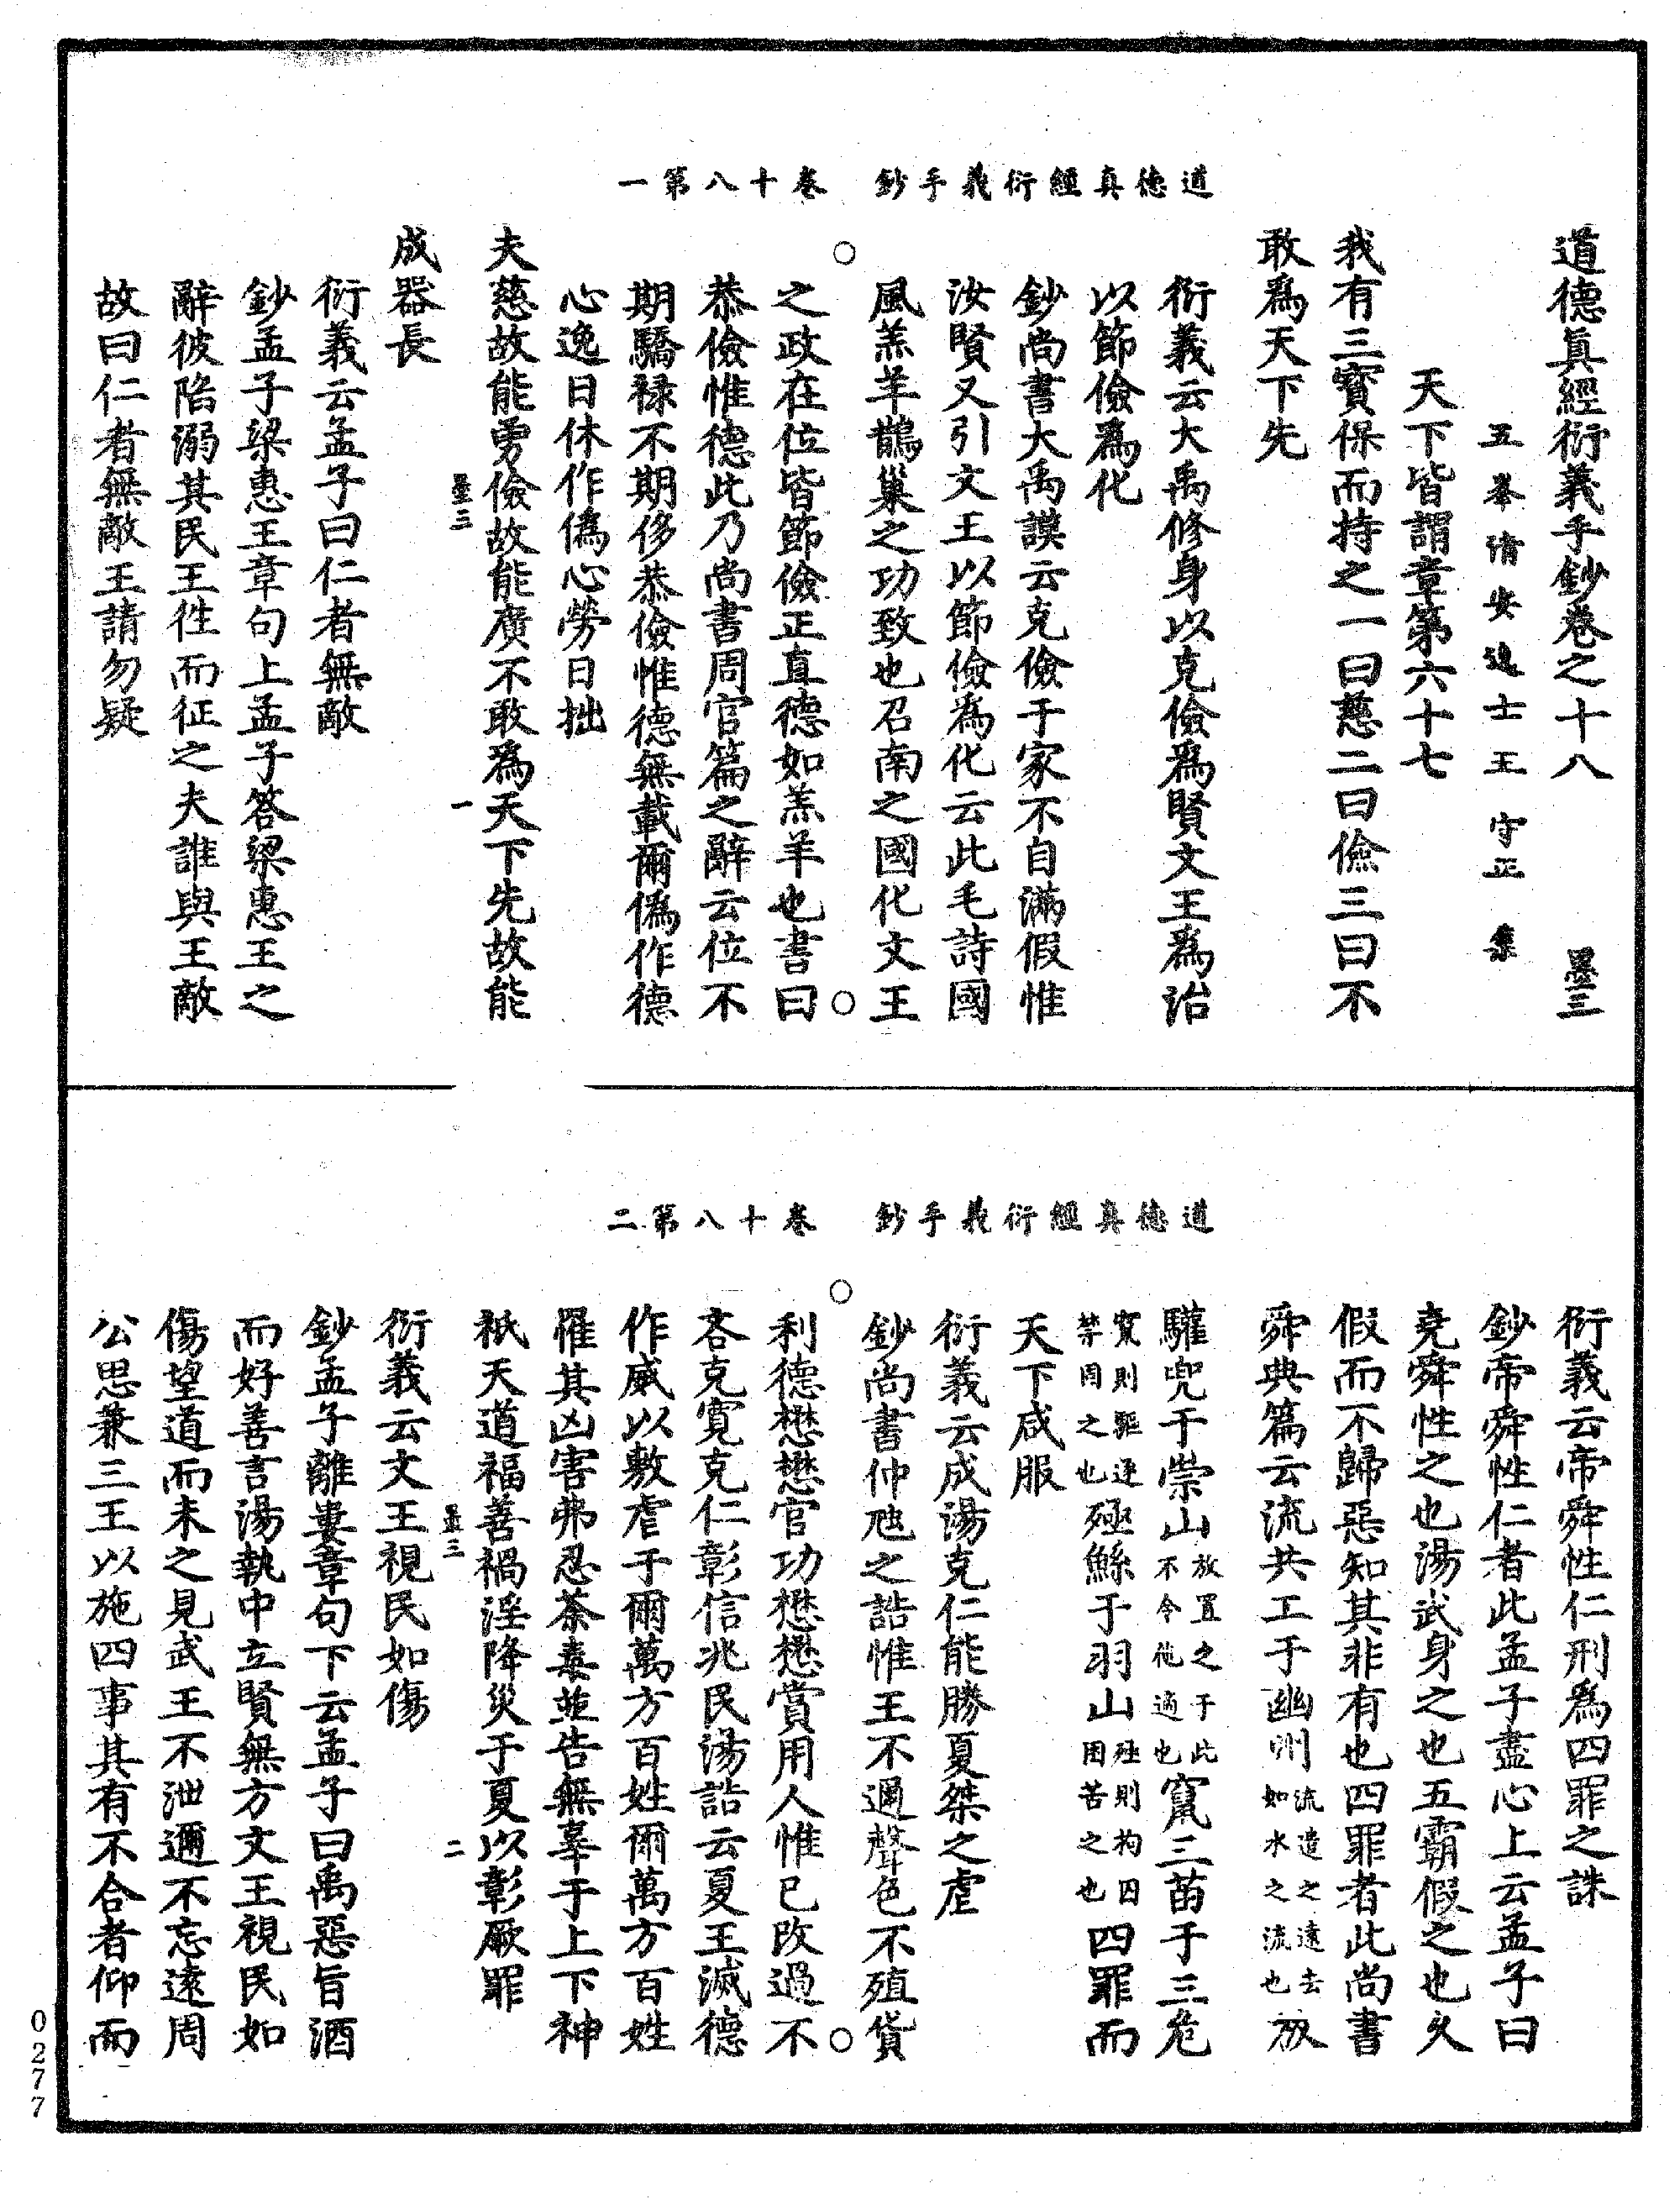 道德真經衍義手鈔 卷十八第一
道德眞經衍義手鈔卷之十八 墨三
五峯清安逸士王守正 集
天下皆謂章第六十七
我有三寶保而持之一曰慈二曰儉三曰不
敢爲天下先
衍義云大禹修身以克儉爲賢文王爲治
以節儉爲化
鈔尚書大禹謨云克儉于家不自滿假惟
汝賢又引文王以節儉爲化云此毛詩國
風羔羊鵲巢之功致也召南之國化文王
之政在位皆節儉正直德如羔羊也書曰
恭儉惟德此乃尚書周官篇之辭云位不
期驕祿不期侈恭儉惟德無載爾僞作德
心逸日休作僞心勞日拙
夫慈故能勇儉故能廣不敢爲天下先故能
墨三 一
成器長
衍義云孟子曰仁者無敵
鈔孟子梁惠王章句上孟子答梁惠王之
辭彼陷溺其民王徃而征之夫誰與王敵
故曰仁者無敵王請勿疑
道德真經衍義手鈔 卷十八第二
衍義云帝舜性仁刑爲四罪之誅
鈔帝舜性仁者此孟子盡心上云孟子曰
堯舜性之也湯武身之也五霸假之也久
假而不歸惡知其非有也四罪者此尚書
舜典篇云流共工于幽州流遣之遠去如水之流也放
驩兜于崇山放置之于此不令他適也竄三苗于三危
竄則驅逐禁囷之也殛鯀于羽山殛則拘囚困苦之也四罪而
天下咸服
衍義云成湯克仁能勝夏桀之虐
鈔尚書仲虺之誥惟王不邇聲色不殖貨
利德懋懋官功懋懋賞用人惟已改過不
吝克寬克仁彰信兆民湯誥云夏王滅德
作威以敷虐于爾萬方百姓爾萬方百姓
罹其凶害弗忍荼毒並告無辜于上下神
祇天道福善禍淫降災于夏以彰厥罪
墨三 二
衍義云文王視民如傷
鈔孟子離婁章句下云孟子曰禹惡旨酒
而好善言湯執中立賢無方文王視民如
傷望道而未之見武王不泄邇不忘遠周
公思兼三王以施四事其有不合者仰而
0277